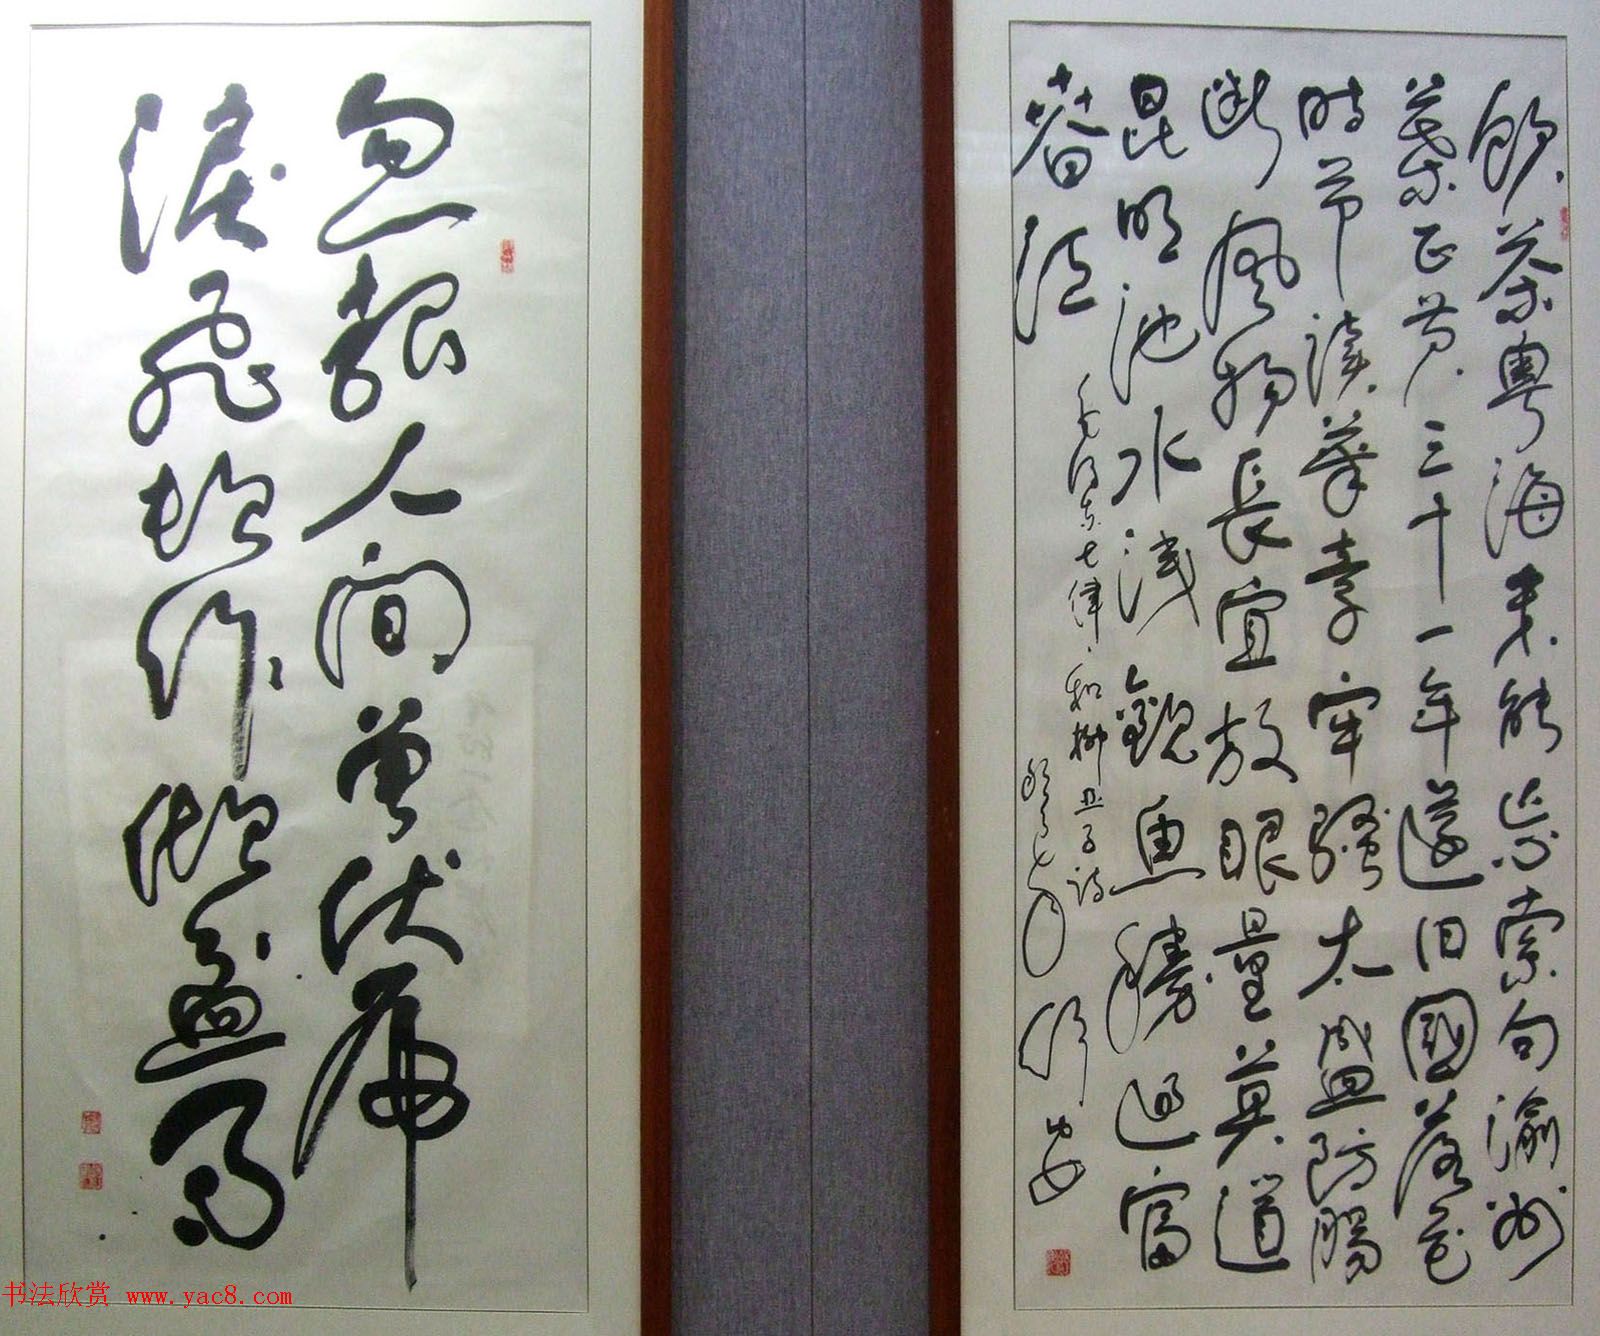 飲茶粵海未能忘索句渝州
葉正黄三十一年還旧國落花
時節讀華章牢騷太盛防腸
斷風物長宜放眼量莫道
昆明池水浅觀魚勝過富
春江
毛澤東七律和柳亚子詩
忽報人間曾伏虎
淚飛頓作傾盆雨
书法欣赏 www.yac8.com